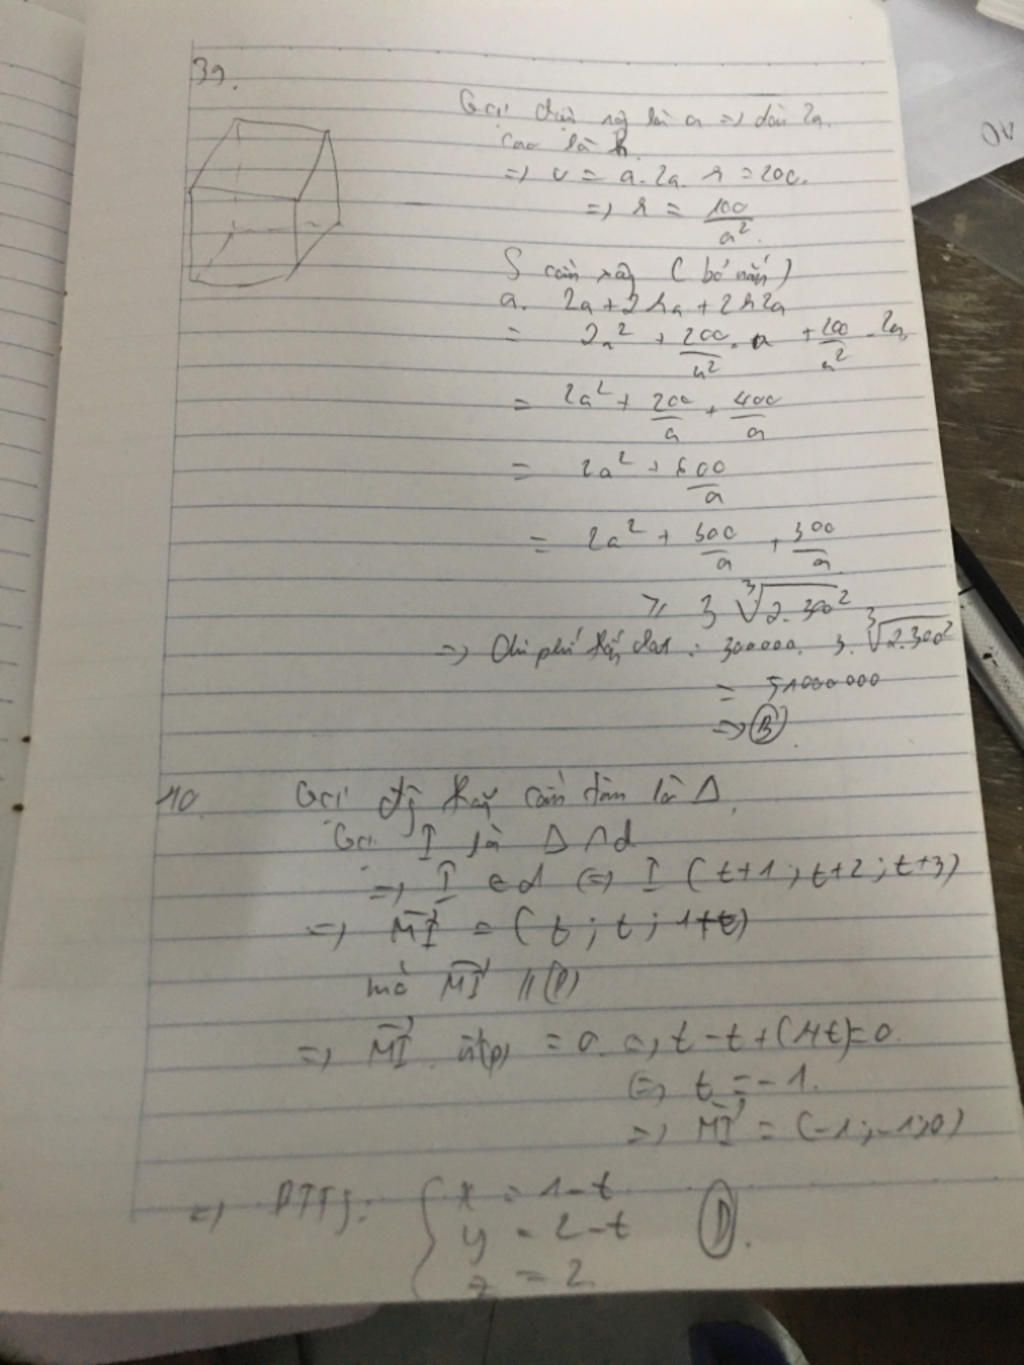 39.
Gọi chiều rộng là a => dài 2a.
cao là h.
=> V = a.2a.h = 200.
=> h = 100/a².
S cần xây (bỏ nắp)
a. 2a + 2ha + 2h2a
= 2a² + 200/a² . a + 200/a² . 2a
= 2a² + 200/a + 400/a
= 2a² + 600/a
= 2a² + 300/a + 300/a
≥ 3 ∛(2.300²)
=> Chi phí thấp nhất : 300000. 3. ∛(2.300²)
= 51000000
=> B
40. Gọi đg thẳng cần tìm là Δ.
Gọi I là Δ ∩ d
=> I ∈ d <=> I (t+1; t+2; t+3)
=> MI = (t; t; 1+t)
mà MI // (P)
=> MI . n(P) = 0. => t - t + (1+t) = 0.
<=> t = -1.
=> MI = (-1; -1; 0)
=> PTTS: { x = 1 - t
y = 2 - t D.
z = 2